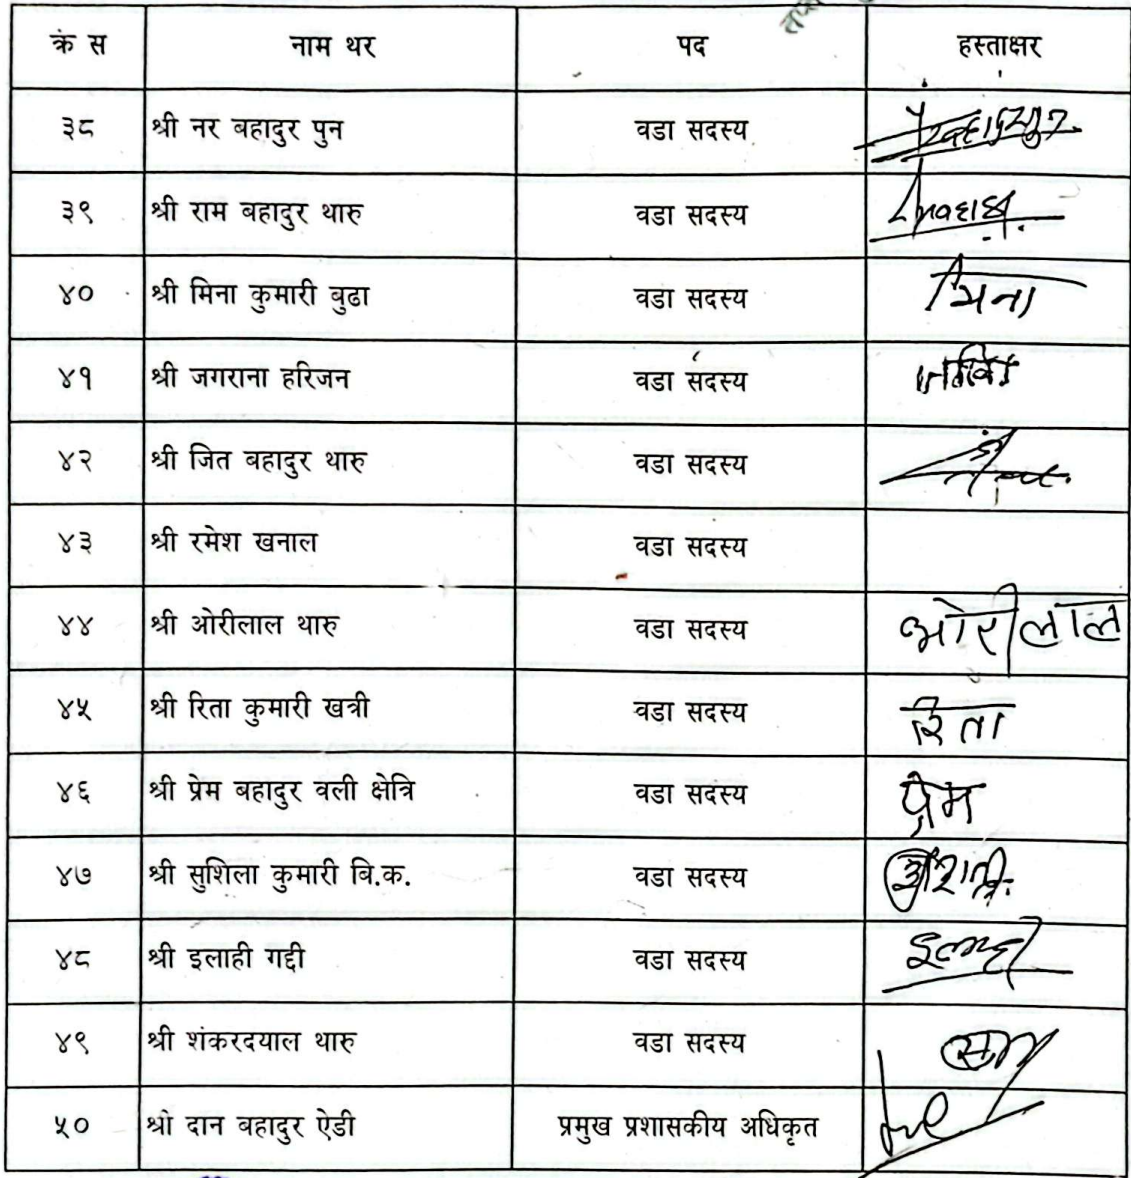 क्रं स नाम थर पद हस्ताक्षर
३८ श्री नर बहादुर पुन वडा सदस्य
३९ श्री राम बहादुर थारु वडा सदस्य
४० श्री मिना कुमारी बुढा वडा सदस्य मिना
४१ श्री जगराना हरिजन वडा सदस्य
४२ श्री जित बहादुर थारु वडा सदस्य
४३ श्री रमेश खनाल वडा सदस्य
४४ श्री ओरीलाल थारु वडा सदस्य ओरीलाल
४५ श्री रिता कुमारी खत्री वडा सदस्य रिता
४६ श्री प्रेम बहादुर वली क्षेत्रि वडा सदस्य प्रेम
४७ श्री सुशिला कुमारी वि.क. वडा सदस्य
४८ श्री इलाही गद्दी वडा सदस्य
४९ श्री शंकरदयाल थारु वडा सदस्य
५० श्री दान बहादुर ऐडी प्रमुख प्रशासकीय अधिकृत